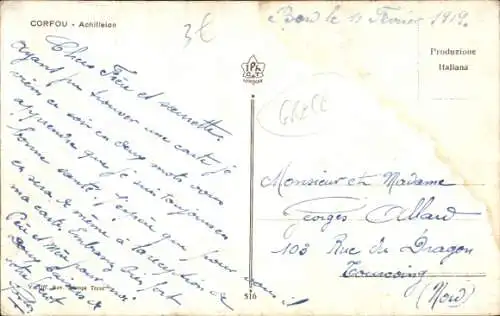 CORFOU - Achilleion
3€
à Bord le 11 Février 1919.
Produzione
Italiana
GRÈCE
Chers Frère et sœurette
ayant pu trouver une carte je
viens ce soir en deux mots vous
apprendre que je suis toujours en
bonne santé. J'espère que pour vous il
en sera de même à la réception de
ma carte. Embrassez bien fort
Père et Mère pour moi
Doux baisers de
votre frère
Monsieur et Madame
Georges Allard
103 Rue du Dragon
Tourcoing
(Nord)
516